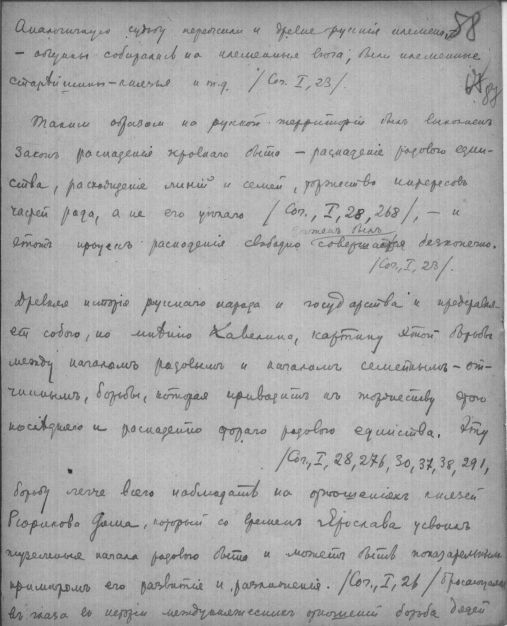 Аналогичную судьбу пережили и древне русскія племена, 58
– общины собирались на племенныя вѣча; были племенные
старѣйшины – князья и т.д. /Соч. I, 23/.
87
Такимъ образомъ на русской территоріи былъ выполненъ
законъ распаденія кровнаго быта – распаденіе родового един-
ства, расхожденіе линій и семей, торжество интересовъ
частей рода, а не его цѣлаго /Соч., I, 28, 268/, – и
долженъ былъ
этотъ процессъ распаденія свободно совершаться безконечно.
/Соч., I, 23/.
Древняя исторія русскаго народа и государства и представля-
етъ собою, по мнѣнію Кавелина, картину этой борьбы
между началомъ родовымъ и началомъ семейнымъ – от-
чиннымъ, борьбы, которая приводитъ къ торжеству этого
послѣдняго и распаденію родового единства. Эту
/Соч., I, 28, 276, 30, 37, 38, 291,
борьбу легче всего наблюдать на отношеніяхъ князей
Рюрикова Дома, который со временъ Ярослава усвоилъ
туземныя начала родового быта и можетъ быть показательнымъ
примѣромъ его развитія и разложенія. /Соч., I, 26/ бросающаяся
въ глаза въ исторіи междукняжескихъ отношеній борьба дядей